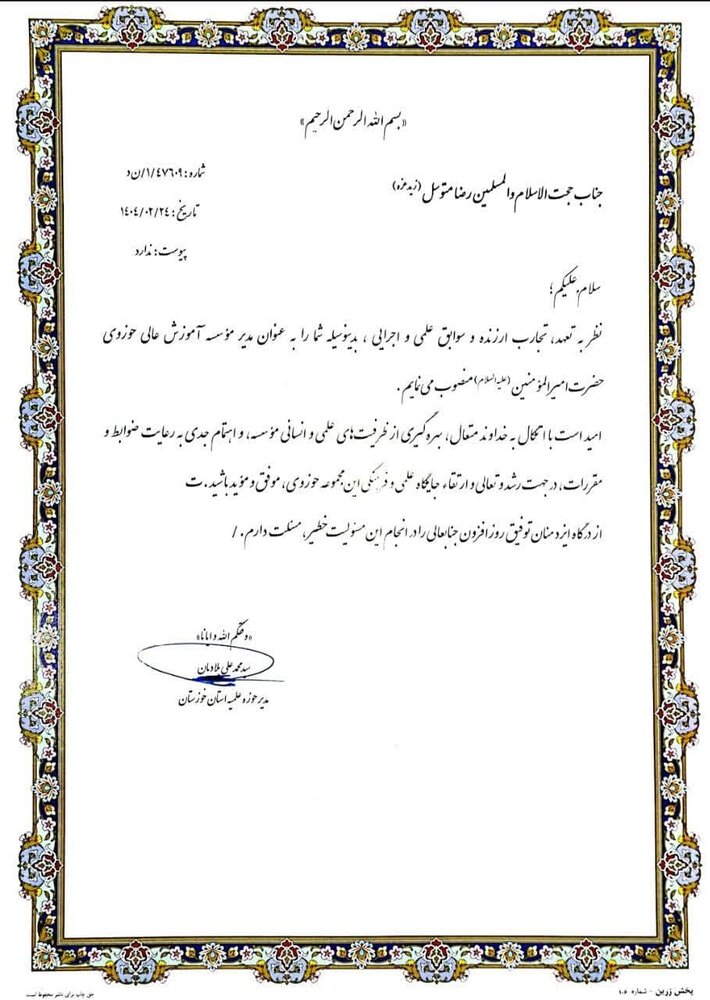 «بسم الله الرحمن الرحیم»
شماره: ۱/۴۷۶۰۹/ن‌د
جناب حجت الاسلام والمسلمین رضا متوسل (زید عزه)
تاریخ: ۱۴۰۴/۰۲/۲۴
پیوست: ندارد
سلام علیکم؛
نظر به تعهد، تجارب ارزنده و سوابق علمی و اجرایی ، بدینوسیله شما را به عنوان مدیر مؤسسه آموزش عالی حوزوی
حضرت امیرالمؤمنین (علیه السلام) منصوب می نمایم .
امید است با اتکال به خداوند متعال، بهره گیری از ظرفیت‌های علمی و انسانی مؤسسه، و اهتمام جدی به رعایت ضوابط و
مقررات، در جهت رشد و تعالی و ارتقاء جایگاه علمی و فرهنگی این مجموعه حوزوی، موفق و مؤید باشید.ت
از درگاه ایزد منان توفیق روز افزون جنابعالی را در انجام این مسئولیت خطیر، مسئلت دارم. /
«وفقکم الله و ایانا»
سید محمد علی بلادیان
مدیر حوزه علمیه استان خوزستان
پخش زرین - شماره ۱۰۶
حق چاپ برای ناشر محفوظ است